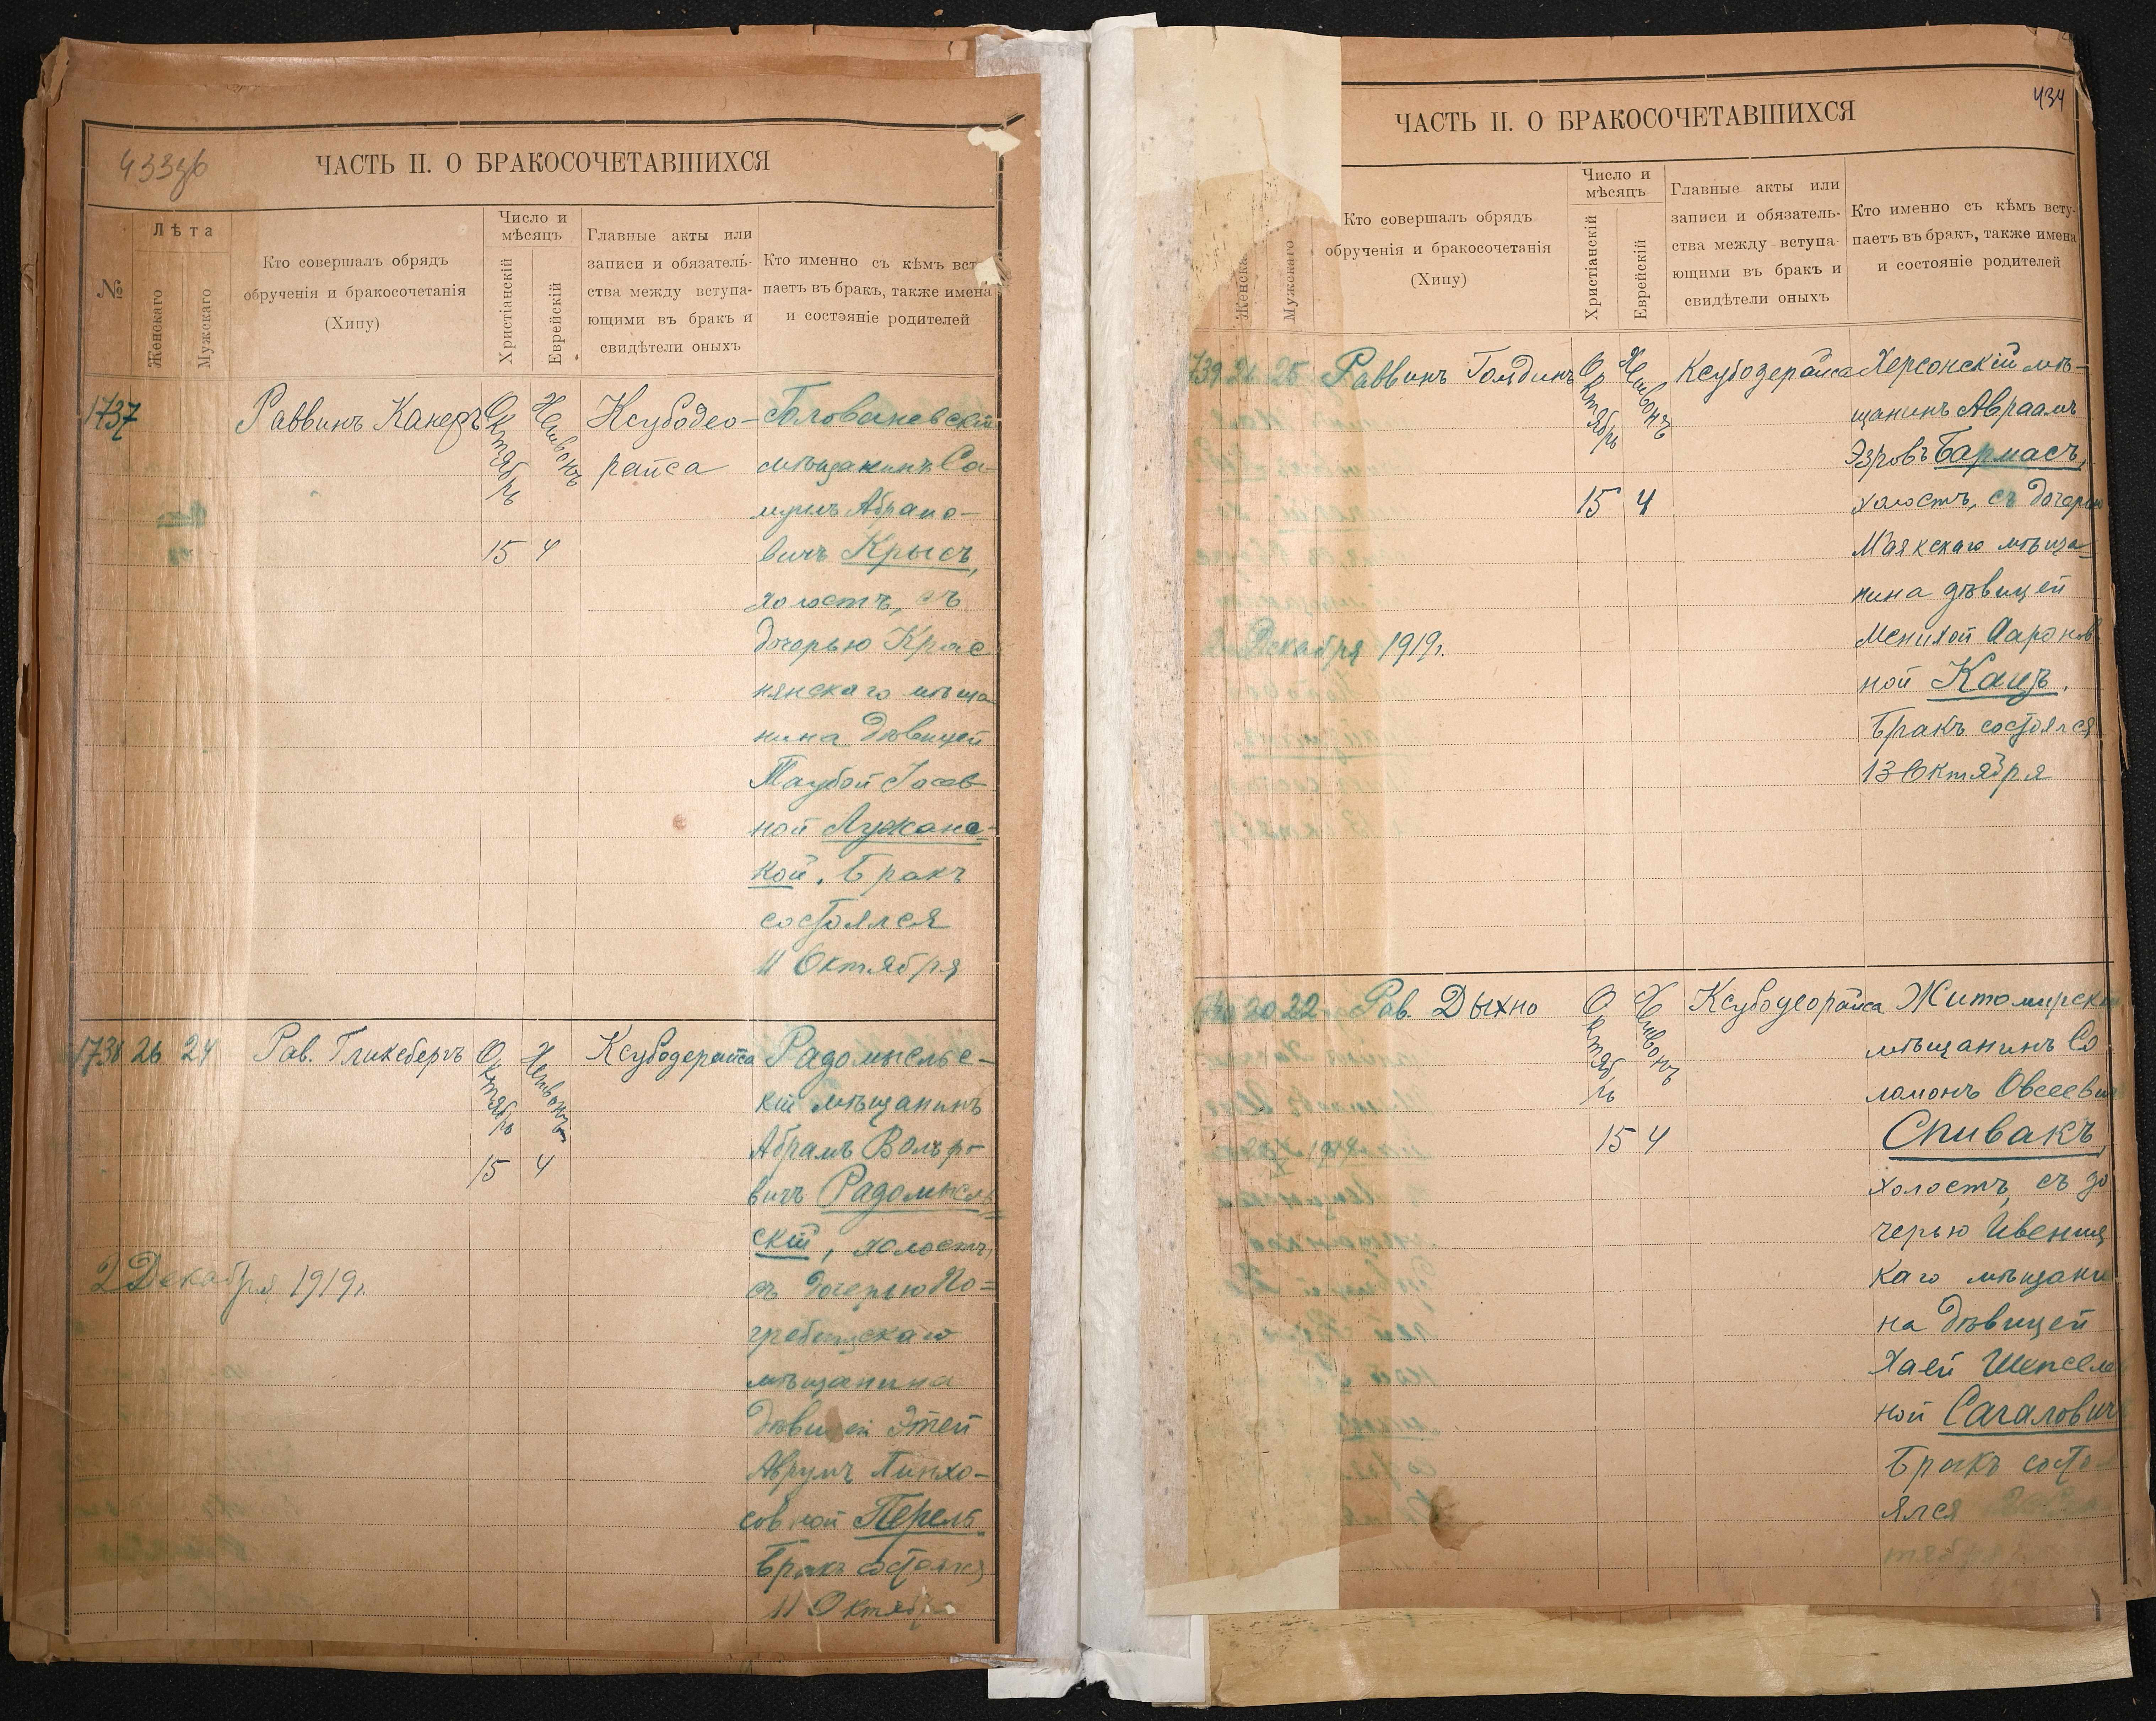 433об
ЧАСТЬ II. О БРАКОСОЧЕТАВШИХСЯ
№
Лѣта
Женскаго
Мужскаго
Кто совершалъ обрядъ
обрученія и бракосочетанія
(Хипу)
Число и
мѣсяцъ
Христіанскій
Еврейскій
Главные акты или
записи и обязатель-
ства между вступа-
ющими въ бракъ и
свидѣтели оныхъ
Кто именно съ кѣмъ вст
паетъ въ бракъ, также имена
и состэяніе родителей
1737
Раввинъ
Октябрь
Хешвонъ
15 4
Ксубодео-
райса
Голованевскій
мѣщанинъ Са-
муилъ Абрамо-
вичъ Крысъ,
холостъ, съ
дочерью Крас
нянскаго мѣща
нина дѣвицей
Таубой Іосев
ной Лужанс-
кой. Бракъ
состоялся
11 Октября
1738 26 24
Рав. Гликсбергъ
Октябрь
Хешвонъ
15 4
Ксубодерайса
Радомысльс-
кій мѣщанинъ
Абрамъ Вольфо
вичъ Радомысль
скій, холостъ,
съ дочерью По=
гребищскаго
мѣщанина
дѣвицей Этей
Аврумъ Пинхо-
совной Перель
Бракъ состоялся
11 Октября
2 Декабря 1919г.
434
ЧАСТЬ II. О БРАКОСОЧЕТАВШИХСЯ
Женска
Мужскаго
Кто совершалъ обрядъ
обрученія и бракосочетанія
(Хипу)
Число и
мѣсяцъ
Христіанскій
Еврейскій
Главные акты или
записи и обязатель-
ства между вступа
ющими въ бракъ и
свидѣтели оныхъ
Кто именно съ кѣмъ всту-
паетъ въ бракъ, также имена
и состояніе родителей
739 21 25
Раввинъ Гольдинъ
Октябрь
Хешвонъ
15 4
Ксубодерайса
Херсонскій мѣ-
щанинъ Авраамъ
Эзровъ Бармасъ,
холостъ, съ дочерью
Маякскаго мѣща-
нина дѣвицей
Менихой Ааронов
ной Кацъ.
Бракъ состоялся
13 Октября
2 Декабря 1919г.
20 22
Рав. Дыхно
Октябрь
Хешвонъ
15 4
Ксубодеорайса
Житомирскі
мѣщанинъ Со
ломонъ Овсеевич
Спивакъ,
холостъ, съ до
черью Ивениц
каго мѣщани
на дѣвицей
Хаей Шепселе
ной Сагалович
Бракъ состо
ялся
тября